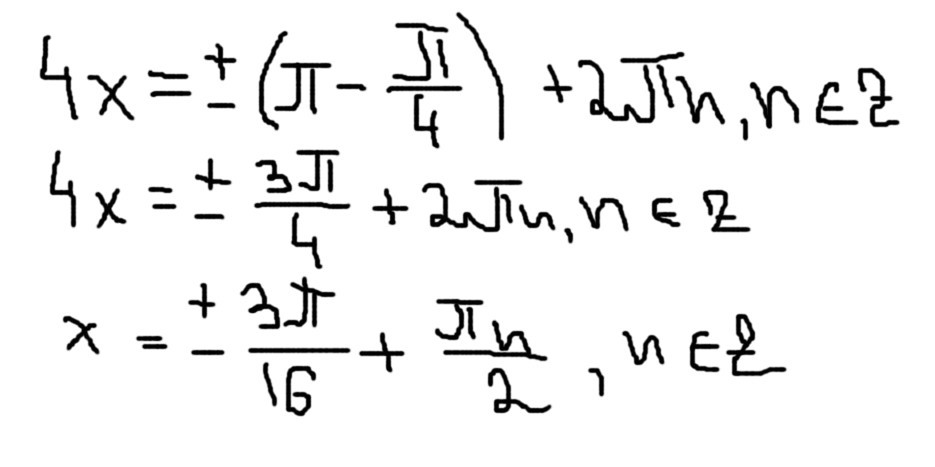 4x = ± (π - π/4) + 2πn, n ∈ Z
4x = ± 3π/4 + 2πn, n ∈ Z
x = ± 3π/16 + πn/2, n ∈ Z